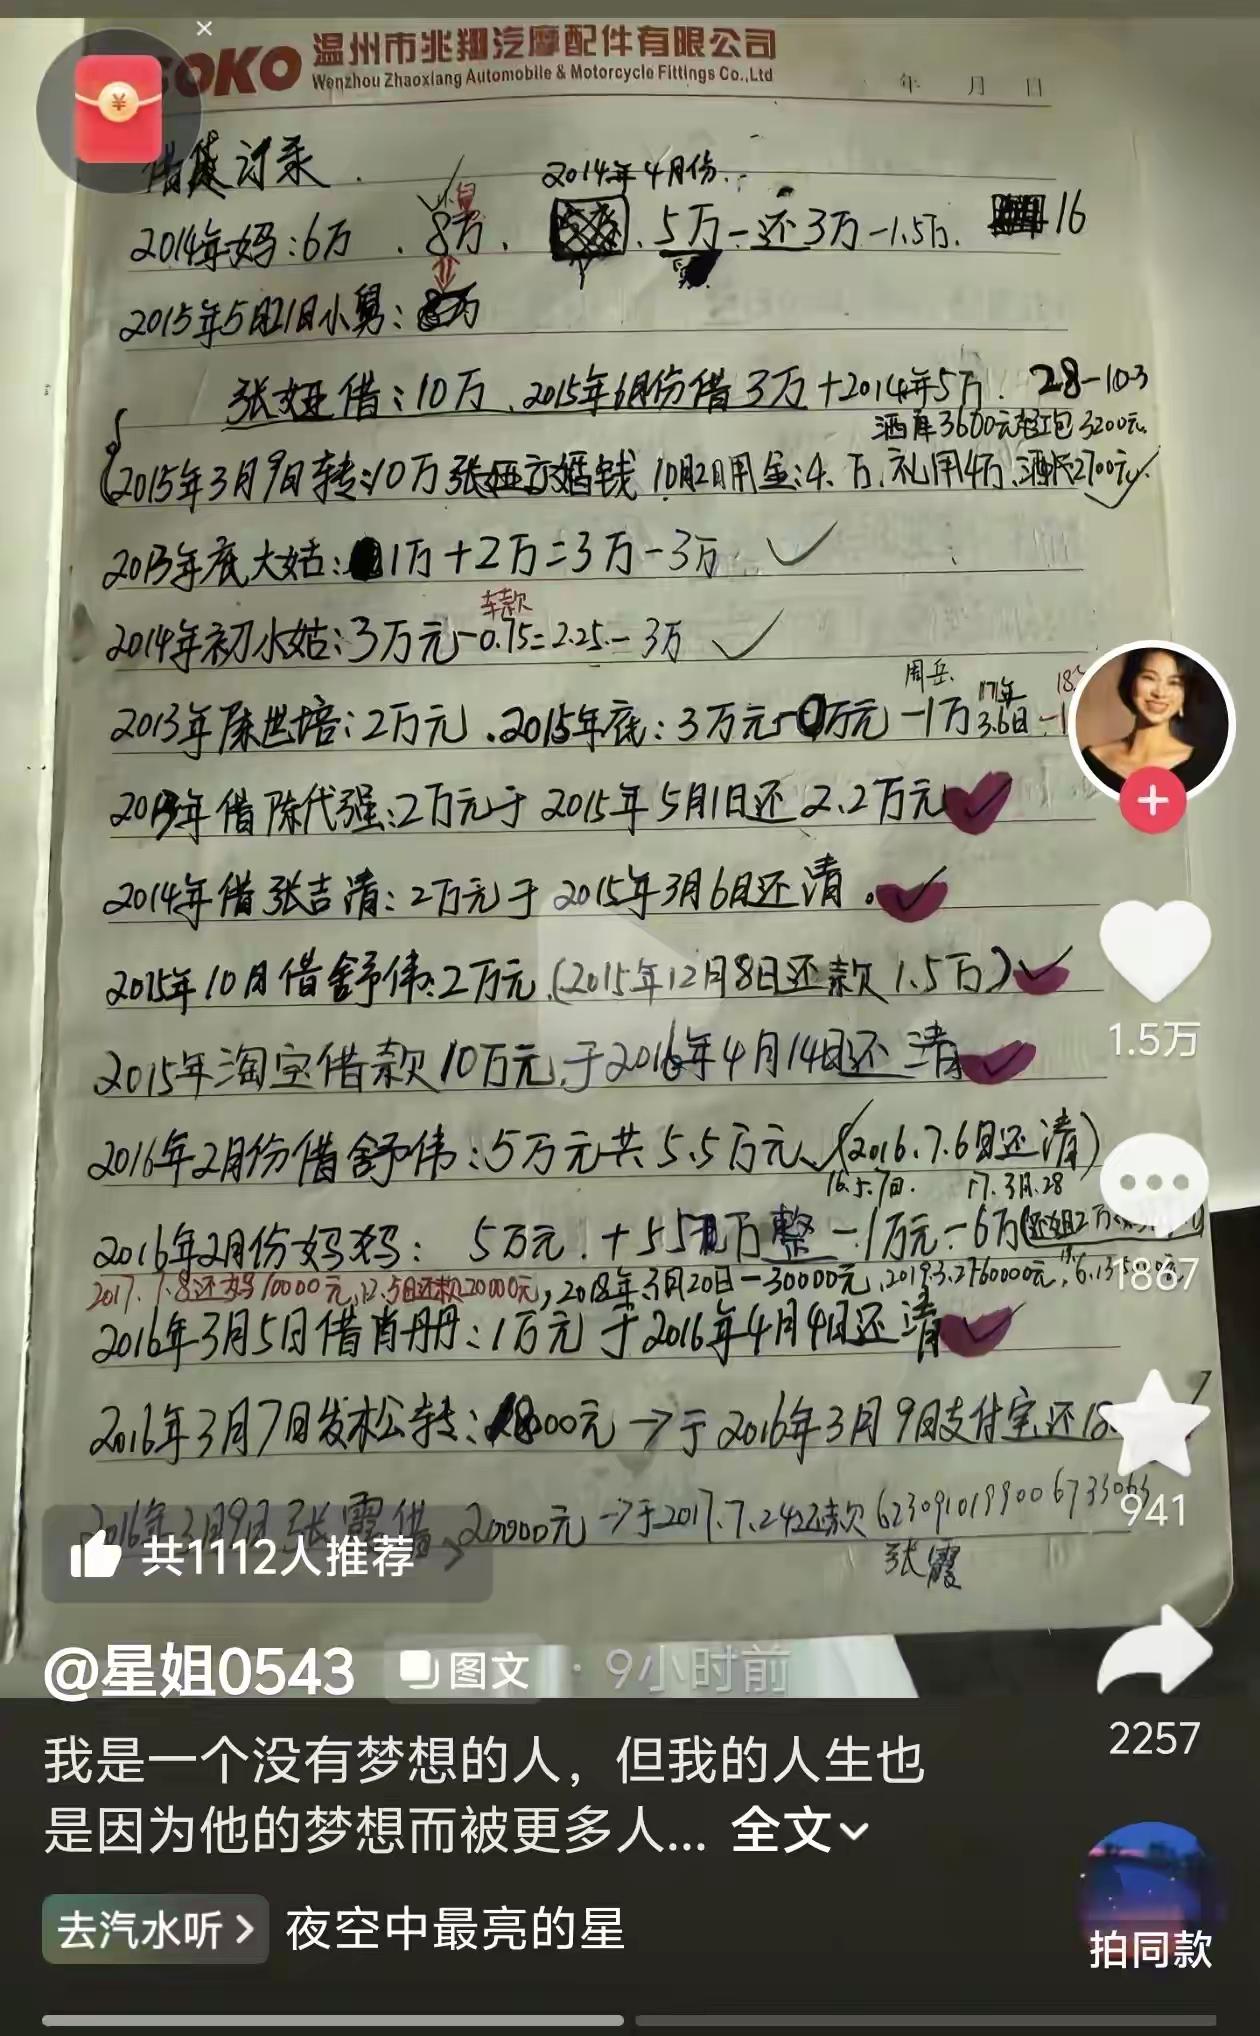 SOKO 温州市兆翔汽摩配件有限公司
Wenzhou Zhaoxiang Automobile & Motorcycle Fittings Co.,Ltd
年 月 日
借贷记录.
2014年4月份.
小舅
2014年妈:6万 . 8万. 5万-还3万-1.5万. 16
2015年5月21日小舅:
张娅借:10万、2015年6月份借3万+2014年5万! 28-10.3
酒席3600元红包3200元
2015年3月9日转:10万张娅 10月2日用金:4.万.礼用4万.2700元
2013年底大姑:1万+2万=3万-3万
车款
2014年初小姑:3万元-0.75=2.25.-3万
周岳.
2013年陈世培:2万元、2015年底:3万元-万元-1万 17年3.6日-1
借陈代强:2万元于2015年5月1日还2.2万元
2014年借张吉清:2万元于2015年3月6日还清.
2015年10月借舒伟:2万元.(2015年12月8日还款1.5万)
2015年淘宝借款10万元于2016年4月14日还清
2016年2月份借舒伟:5万元共5.5万元、(2016.7.6日还清)
16.5.7日. 17.3月.28
2016年2月份妈妈: 5万元.+5.5万整-1万元-6万
2017.1.8还妈10000元,12.5日还款20000元,2018年3月20日-30000元,2019.3.2760000元
2016年3月5日借肖丹丹:1万元于2016年4月4日还清
2016年3月7日发松转:1800元→于2016年3月9日支付宝还18
2016年3月9日张霞借 20000元→于2017.7.24还款
张霞
共1112人推荐
1.5万
1867
941
2257
@星姐0543 图文 · 9小时前
我是一个没有梦想的人，但我的人生也
是因为他的梦想而被更多人... 全文
去汽水听 夜空中最亮的星
拍同款